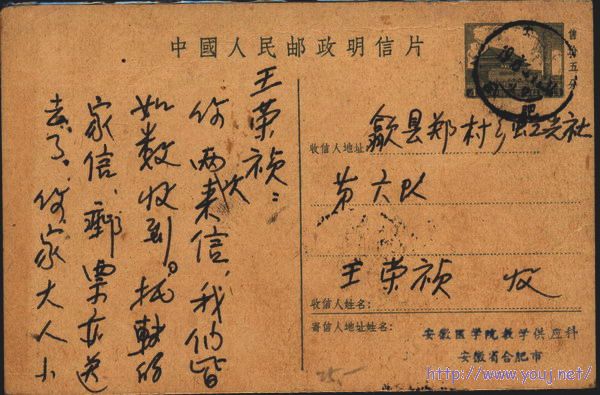 中國人民邮政明信片
售价五分
肥
收信人地址:
歙县郑村乡虹光社
第六队
收信人姓名:
王荣祯 收
寄信人地址姓名:
安徽医学院教学供应科
安徽省合肥市
王荣祯:
你两次来信,我们皆
如数收到。托转的
家信、邮票亦送
去了,你家大人小
http://www.youj.net/